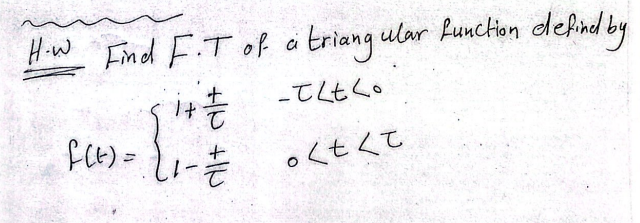 H.W Find F.T of a triangular function defind by
f(t) = { 1 + t/τ   -τ < t < 0
1 - t/τ   0 < t < τ